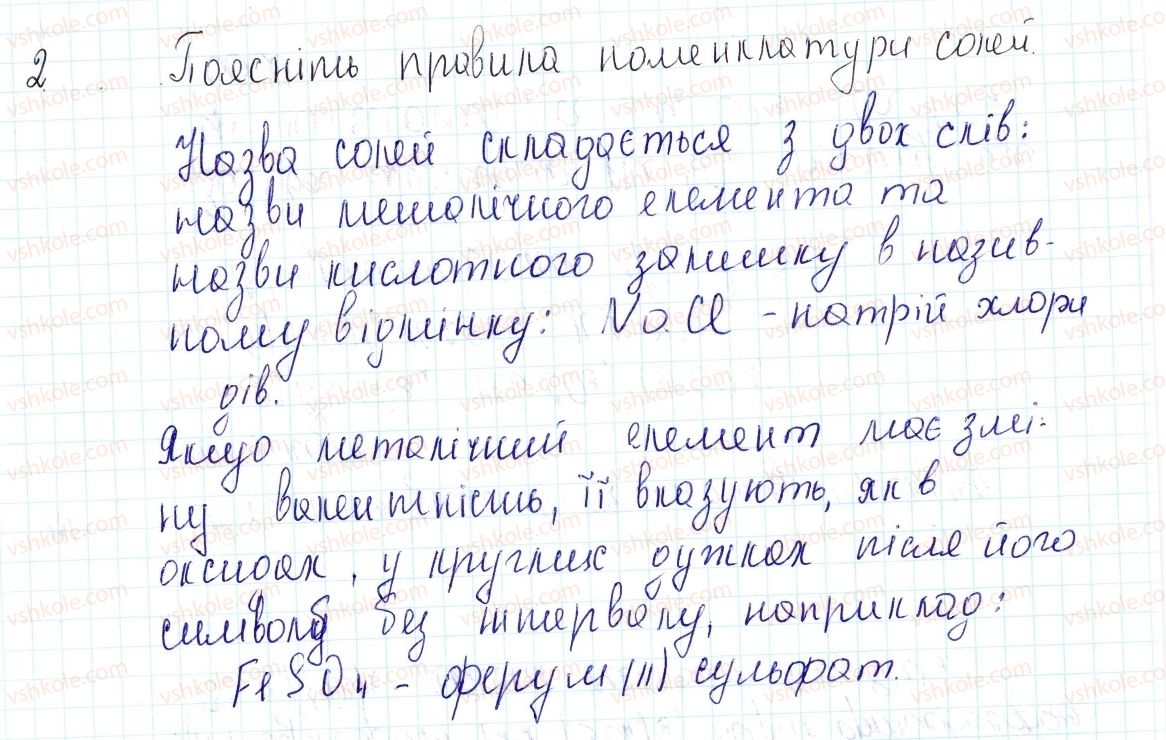 2 Поясніть правила номенклатури солей.
Назва солей складається з двох слів:
назви металічного елемента та
назви кислотного залишку в назив-
ному відмінку: NaCl - натрій хлори
дів.
Якщо металічний елемент має змі-
ну валентність, її вказують, як в
оксидах, у круглих дужках після його
символу без інтервалу, наприклад:
FeSO4 - ферум (II) сульфат.